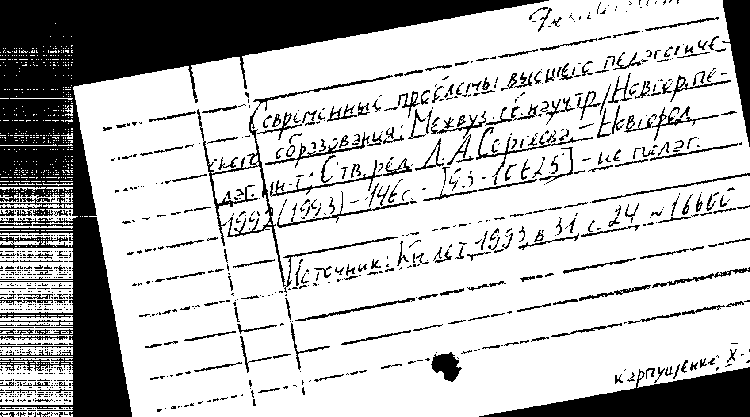 Современные проблемы высшего педагогиче-
ского образования: Межвуз. сб. науч. тр./Новгор. пе-
даг. ин-т; Отв. ред. Л.А. Сергеева. - Новгород,
1992 (1993) - 146 с. - [93-10625] - не педаг.
Источник: Кн. лет., 1993, в 31, с. 24, № 16660
Карпущенко, X-